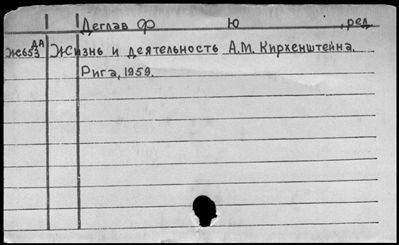 Деглав Ф Ю , ред.
ДА
Ж653 Жизнь и деятельность А.М. Кирхенштейна.
Рига, 1959.